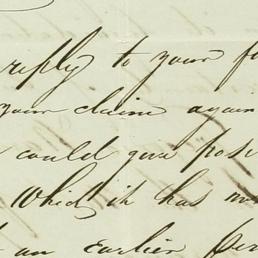 reply to your
your claim again
could give posi
Which it has
an Earlier Per